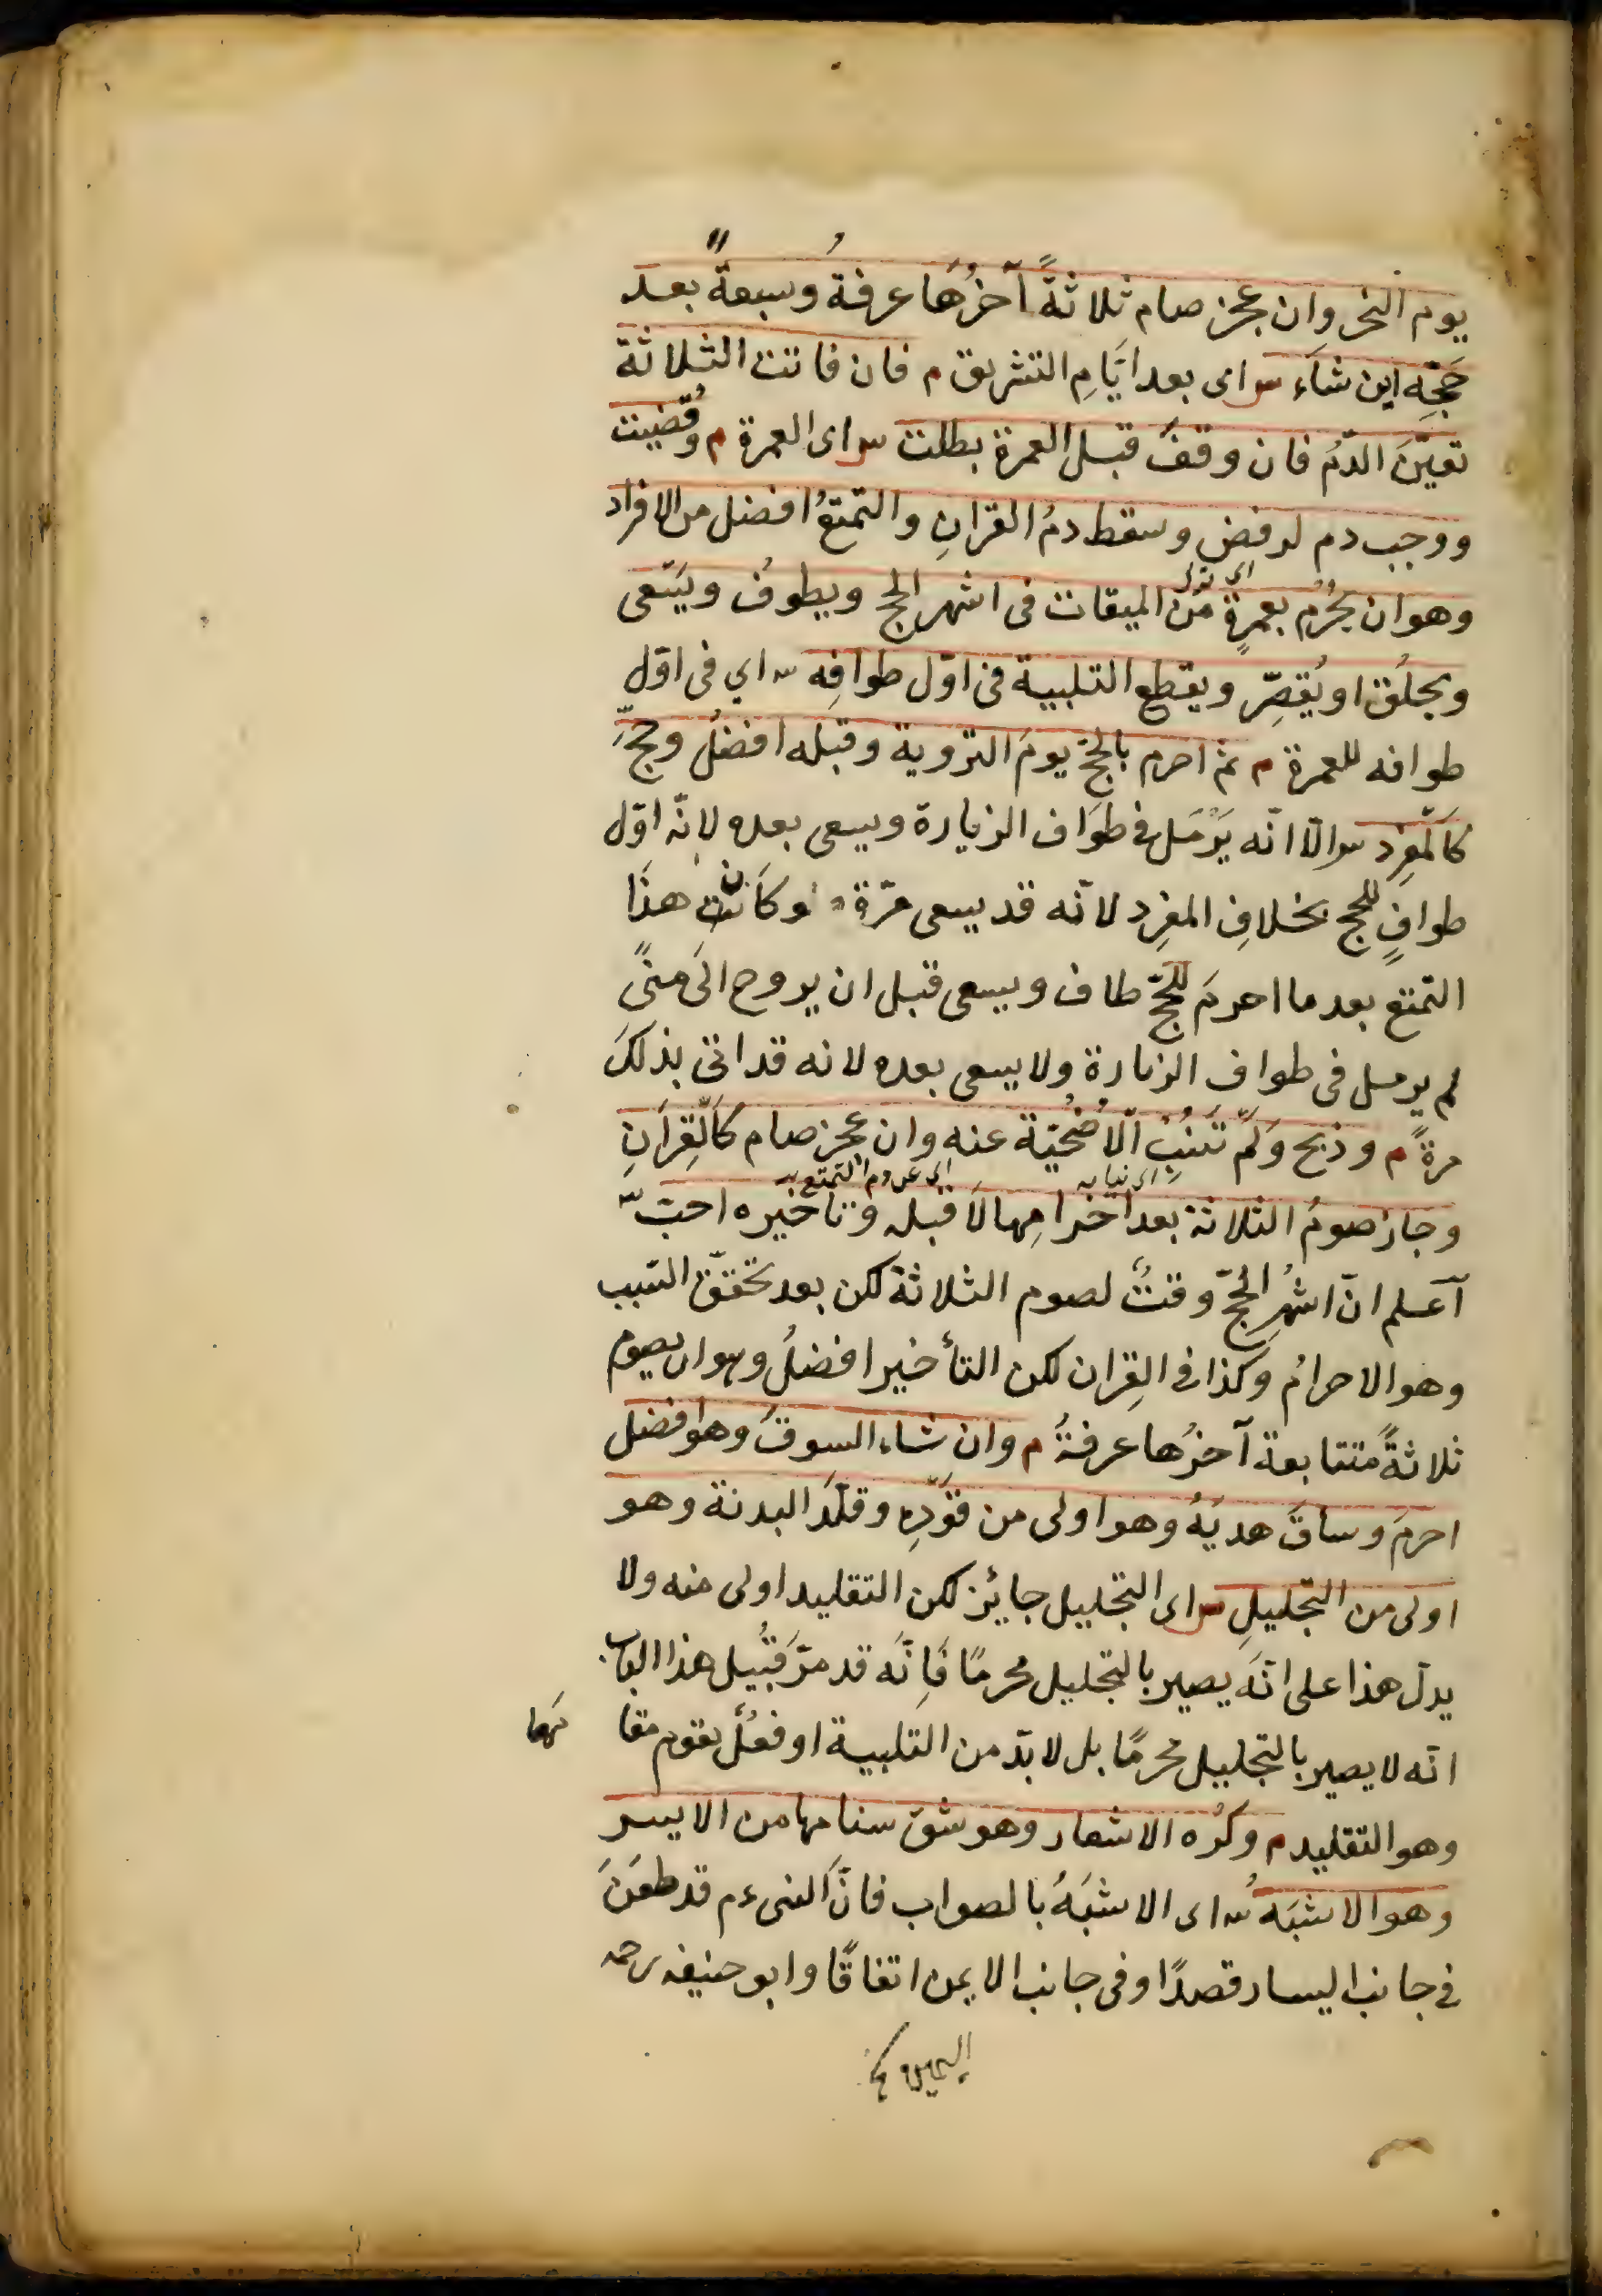 يوم النحر وان عجز صام ثلاثةً آخرُها عرفةُ وسبعةً بعد
حَجِّه اين شاء س اى بعد ايّامِ التشريق م فان فاتت الثلاثة
تعيّنَ الدّمُ فان وقفَ قبل العمرة بطلت س اى العمرة م وقُضيت
ووجب دم لرفض وسقط دمُ القرانِ والتمتعُ افضل من الافراد
وهو ان يُحْرم بعمرةٍ من الميقات فى اشهر الحج ويطوفُ ويَسْعى
ويحلُق او يُقصِّر ويقطع التلبية فى اوّل طوافِه س اي فى اوّل
طوافه للعمرة م ثم احرم بالحجّ يومَ التروية وقبلَه افضلُ وحجَّ
كالمُفرِد س الّا انّه يَرْمَل فى طوَاف الزيارة ويسعى بعده لانّه اوّل
طوافٍ للحج بخلافِ المفرِد لانّه قد يسعى مرّةً ولو كَان هذَا
التمتع بعد ما احرمَ للحجّ طاف ويسعى قبل ان يروح الَى منىً
لم يرمل فى طواف الزيارة ولا يسعى بعده لانه قد اتى بذلكَ
مرةً م وذبح ولَم تَنُبْ الاُضْحيّة عنه وان عجز صام كالقِرَانِ
اى نيابه اى عن دم التمتع
وجاز صومُ الثلاثة بعد احْرامِها لَا قبله وتأخيره احبّ س
آعلم انّ اشهُرِ الحجّ وقتٌ لصوم الثلاثة لكن بعد تحقّق السّبب
وهو الاحرامُ وكذا فى القِران لكن التأخير افضلُ وهو ان يصوم
ثلاثةً متتابعة آخرُها عرفةُ م وان شاء السوقَ وهو افضل
احرمَ وساقَ هديَهُ وهو اولى من قَوْدِه وقلّدَ البدنة وهو
اولى من التجليلِ س اى التجليل جايز لكن التقليد اولى منه ولا
يدلّ هذا على انّه يصير بالتجليل محرمًا فَاِنّه قد مرّ قُبَيل هذا الباب
انّه لا يصير بالتجليل محرمًا بل لا بدّ من التلبية او فعْلٌ يقوم مقا مَها
وهو التقليد م وكُرْه الاشعار وهو شقّ سنامها من الايسر
وهو الاشبَه س اى الاشبَهُ بالصواب فانّ النبىءم قد طعَنَ
فى جانب اليسار قصدًا وفى جانب الايمن اتفاقًا وابو حنيفه رحمه